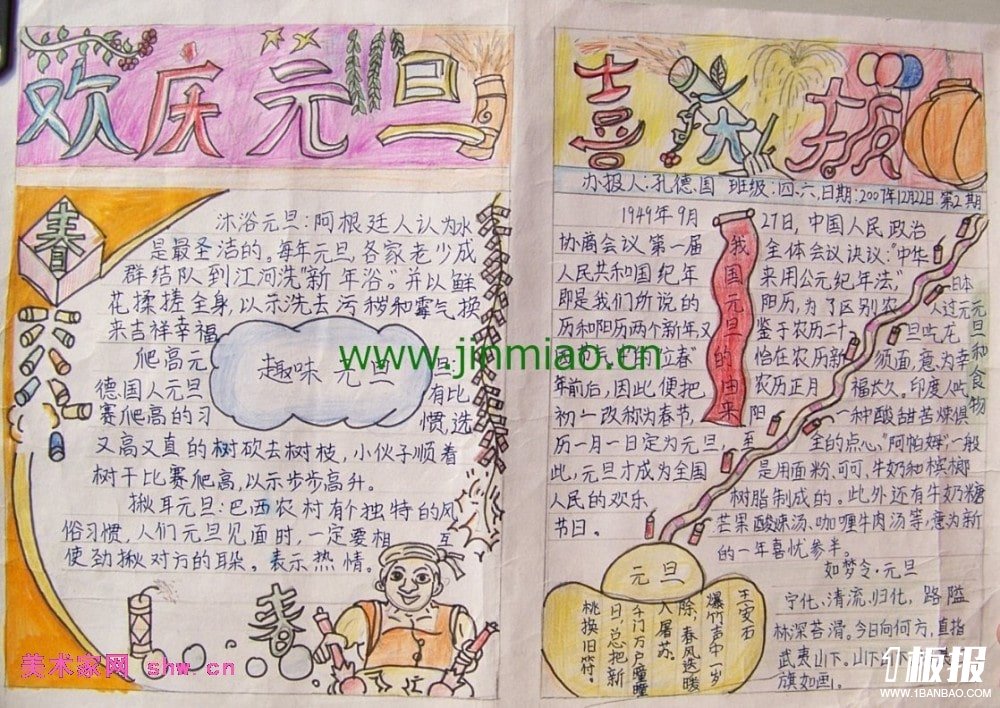 欢庆元旦
春
沐浴元旦:阿根廷人认为水
是最圣洁的。每年元旦,各家老少成
群结队到江河洗"新年浴"。并以鲜
花揉搓全身,以示洗去污秽和霉气,换
来吉祥幸福
趣味元旦
爬高元
德国人元旦 有比
赛爬高的习 惯,选
又高又直的树砍去树枝,小伙子顺着
树干比赛爬高,以示步步高升。
揪耳元旦:巴西农村有个独特的风
俗习惯,人们元旦见面时,一定要相 互
使劲揪对方的耳朵。表示热情。
春
美术家网 shw.cn
www.jinmiao.cn
喜大报
办报人:扎德国 班级:四.六.日期:2007年12月22日 第2期
我国元旦的由来
1949年9月 27日,中国人民政治
协商会议第一届 全体会议决议:"中华
人民共和国纪年 采用公元纪年法",
即是我们所说的 阳历,为了区别农
历和阳历两个新年又 鉴于农历二十
四节气中的"立春" 恰在农历新
年前后,因此便把 农历正月
初一改称为春节, 阳
历一月一日定为元旦,至
此,元旦才成为全国
人民的欢乐
节日。
元旦和食物
日本
人过元
旦吃龙
须面,意为幸
福太久。印度人吃
一种酸甜苦辣俱
全的点心"阿帕姆"一般
是用面粉、可可、牛奶和槟榔
树脂制成的。此外还有牛奶糖
芒果酸辣汤、咖喱牛肉汤等,意为新
的一年喜忧参半。
元旦
王安石
爆竹声中一岁
除,春风送暖
入屠苏。
千门万户瞳瞳
日,总把新
桃换旧符。
如梦令·元旦
宁化、清流、归化,路隘
林深苔滑。今日向何方,直指
武夷山下。山下山下,
旗如画。
1板报
WWW.1BANBAO.COM